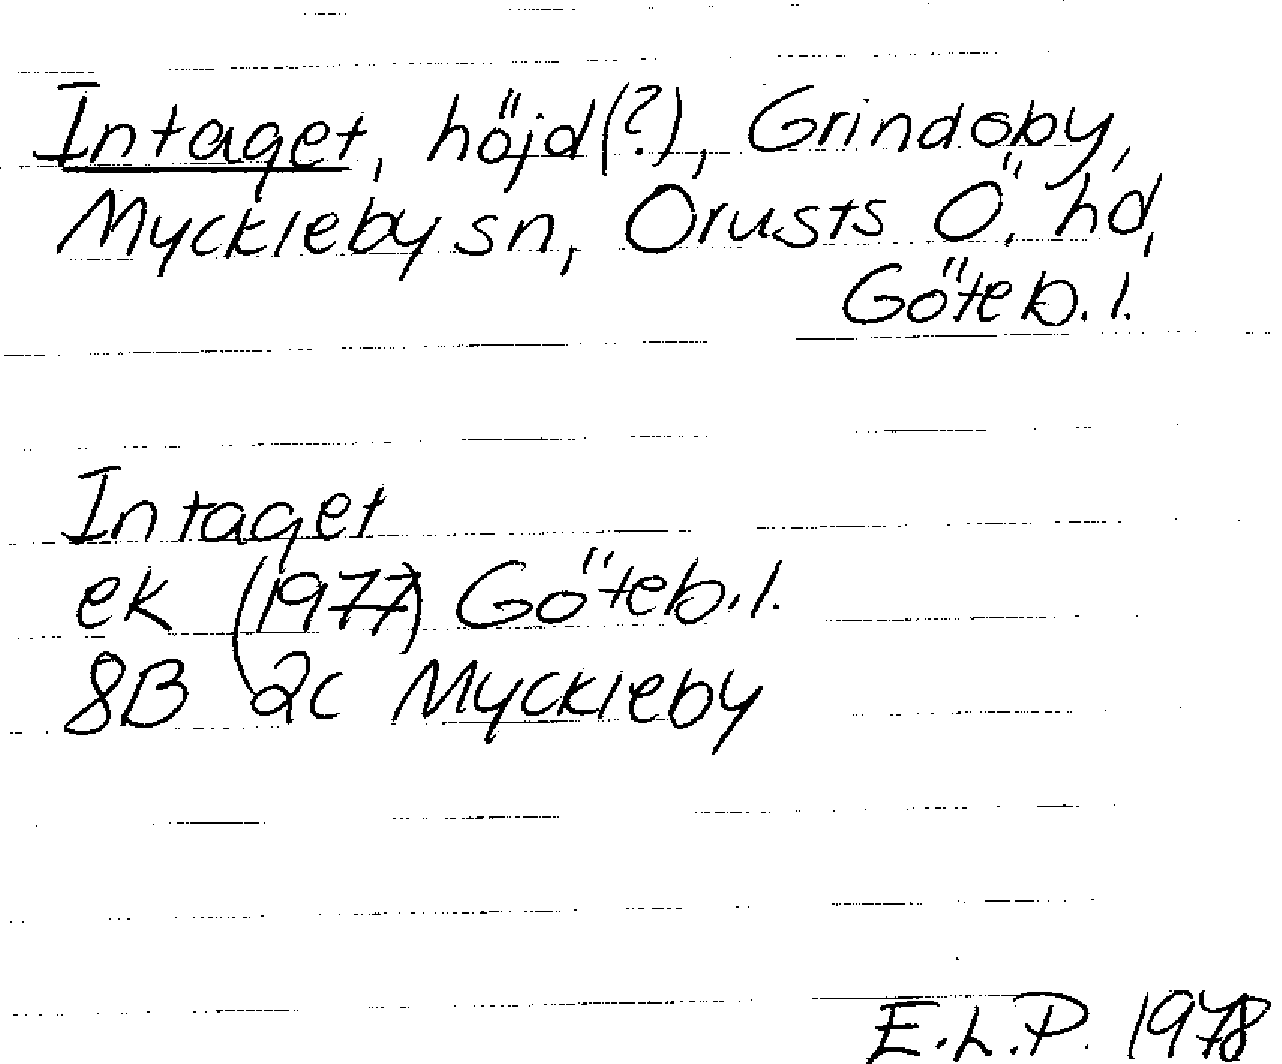 Intaget, höjd(?), Grindsby,
Myckleby sn, Orusts Ö. hd,
Göteb. l.
Intaget
ek (1977) Göteb. l.
8B 2c Myckleby
E.L.P. 1978